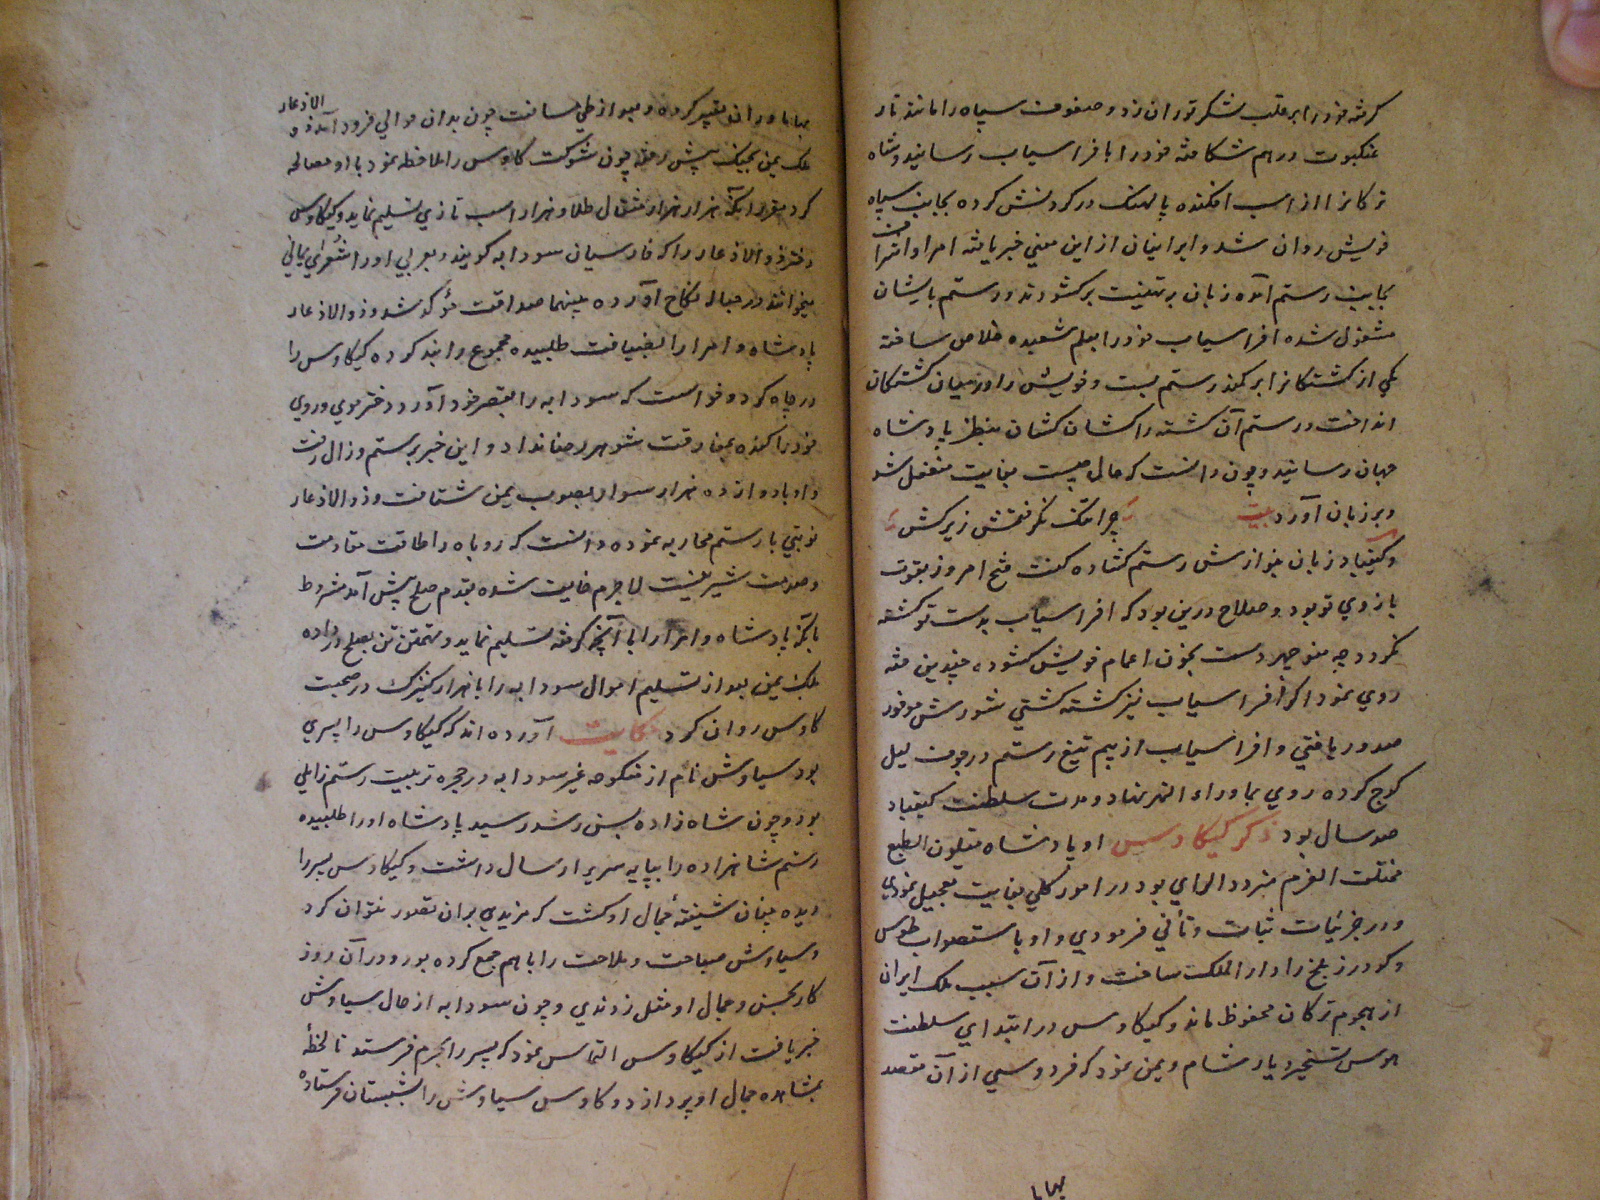 گرفته خود را بر قلب لشکر توران زد و صفوف سپاه را مانند تار
عنکبوت درهم شکافته خود را با فراسیاب رسانید و شاه
ترکانرا از اسب افکنده پالهنک در گردنش کرده بجانب سپاه
خویش روان شد و ایرانیان از این معنی خبر یافته امرا و اشراف
بجانب رستم آمده زبان به تهنیت برکشودند و رستم بایشان
مشغول شده افراسیاب خود را بعلم شعبده خلاص ساخته
یکی از کشتکانرا بر کمند رستم بست و خویش را در میان کشتکان
انداخت و رستم آن کشته را کشان کشان بنظر پادشاه
جهان رسانید و چون دانست که حال چیست بغایت منفعل شد
و بر زبان آورد بیت چرا تنک نگرفتمش زیر کش
و کیقباد زبان بنوازش رستم کشاده کفت فتح امروز بقوت
بازوی تو بود و صلاح درین بود که افراسیاب بدست تو کشته
نکردد چه منوچهر دست بخون اعمام خویش کشوده چندین فتنه
روی نمود اکر افراسیاب نیز کشته کشتی شورش موفور
صدور یافتی و افراسیاب از بیم تیغ رستم در جوف لیل
کوچ کرده روی بماوراء النهر نهاد و مدت سلطنت کیقباد
صد سال بود ذکر کیکاوس او پادشاه متلون الطبع
مختلف العزم متردد الرای بود در امور کلی بغایت تعجیل نمودی
و در جزئیات ثبات و تأنی فرمودی و او باستصواب طوس
و کودرز بلخ را دار الملک ساخت و از آن سبب ملک ایران
از هجوم ترکان محفوظ ماند و کیکاوس در ابتدای سلطنت
هوس تسخیر دیار شام و یمن نمود که فردوسی از آن قصد
بهاما
بهاماوران تعبیر کرده و بعد از طی مسافت چون بدان حوالی فرود آمد ذو الاذعار
ملک یمن بجنک پیش رفته چون شوکت کاوس را ملاحظه نمود با او مصالحه
کرد مقرر آنکه هزار هزار مثقال طلا و هزار اسب تازی تسلیم نماید و کیکاوس
دختر ذو الاذعار را که فارسیان سودابه کویند و بعربی او را شعرای یمانی
میخوانند در حباله نکاح آورده بینهما صداقت مؤکد شد و ذو الاذعار
پادشاه و امرا را بضیافت طلبیده مجموع را بند کرده کیکاوس را
در چاه کرد و خواست که سودابه را بقصر خود آورد دختر موی و روی
خود را کنده بمفارقت شوهر رضا نداد و این خبر برستم و زال رفت
و او با دوازده هزار سوار بصوب یمن شتافت و ذو الاذعار
نوبتی با رستم محاربه نموده دانست که روباه را طاقت مقاومت
و صدمت شیر نیست لاجرم خایف شده بقدم صلح پیش آمد مشروط
بانکه پادشاه و امرا را با آنچه کرفته تسلیم نماید و تهمتن تن بصلح در داده
ملک یمن بعد از تسلیم اموال سودابه را با هزار کنیزک در صحبت
کاوس روان کرد حکایت آورده اند که کیکاوس را پسری
بود سیاوش نام از منکوحه غیر سودابه در حجره تربیت رستم زابلی
بود و چون شاه زاده بسن رشد رسید پادشاه او را طلبیده
رستم شاهزاده را بپایه سریر ارسال داشت و کیکاوس پسر را
دیده چنان شیفته جمال او کشت که مزیدی بران تصور نتوان کرد
و سیاوش صباحت و ملاحت را با هم جمع کرده بود و در آن روز
کار بحسن و جمال او مثل زدندی و چون سودابه از حال سیاوش
خبر یافت از کیکاوس التماس نمود که پسر را بحرم فرستد تا لحظهٔ
بمشاهده جمال او پردازد و کاوس سیاوش را بشبستان فرستاده